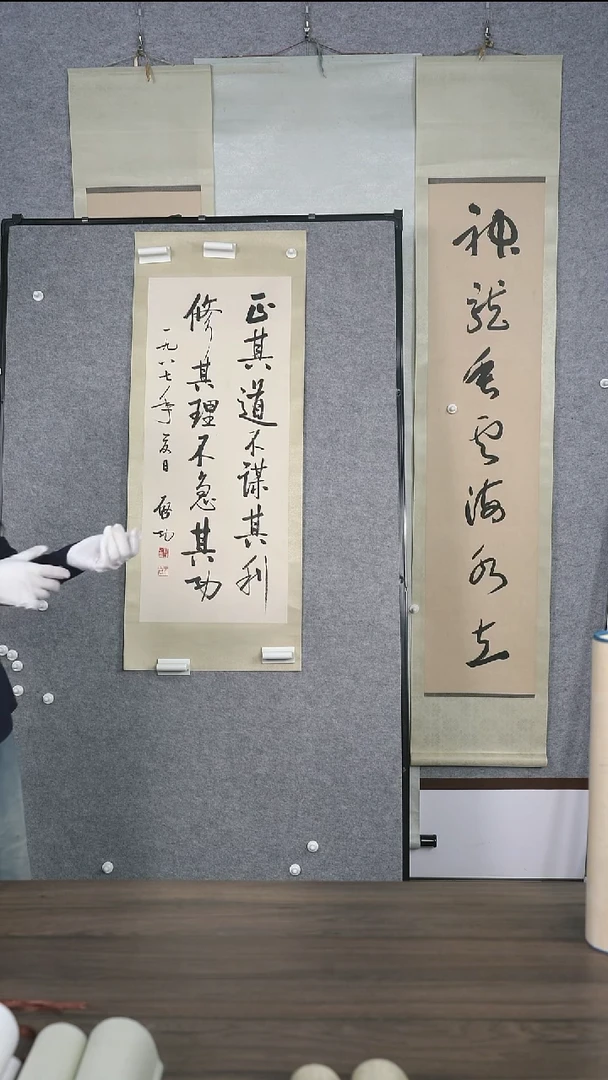 神龍垂云海水立
正其道不谋其利
修其理不急其功
一九八七年夏日 啟功